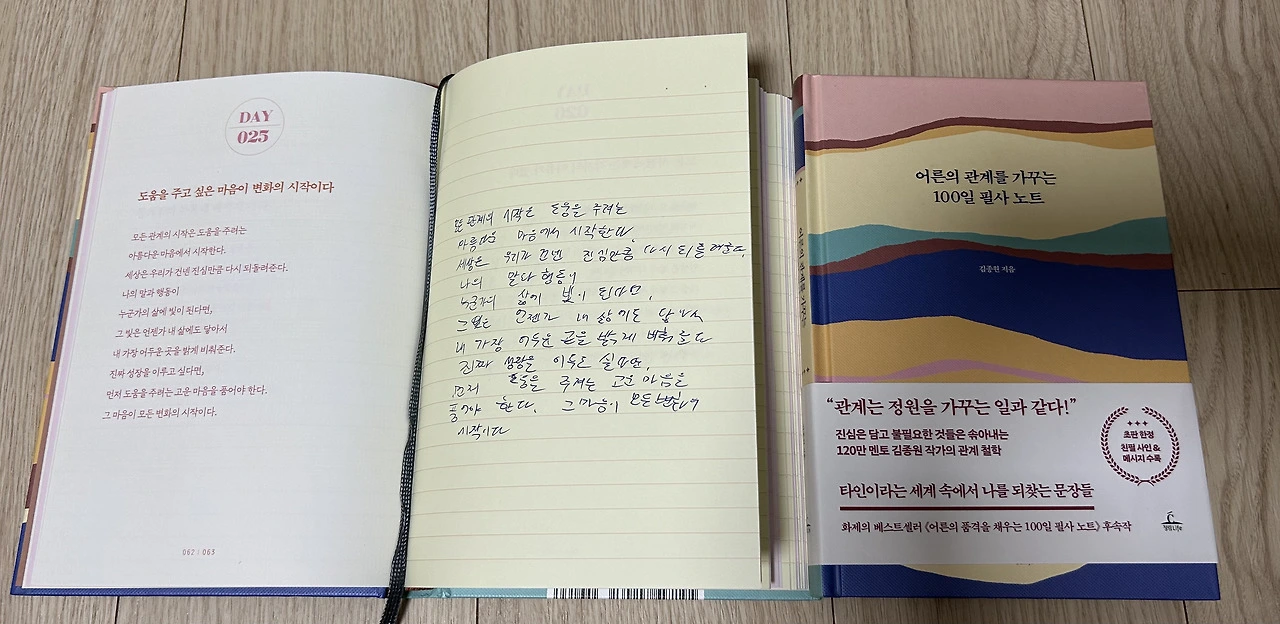 DAY
025
도움을 주고 싶은 마음이 변화의 시작이다
모든 관계의 시작은 도움을 주려는
아름다운 마음에서 시작한다.
세상은 우리가 건넨 진심만큼 다시 되돌려준다.
나의 말과 행동이
누군가의 삶에 빛이 된다면,
그 빛은 언젠가 내 삶에도 닿아서
내 가장 어두운 곳을 밝게 비춰준다.
진짜 성장을 이루고 싶다면,
먼저 도움을 주려는 고운 마음을 품어야 한다.
그 마음이 모든 변화의 시작이다.
062 | 063
관계의 시작은 도움을 주려는
아름다운 마음에서 시작한다.
세상은 우리가 건넨 진심만큼 다시 되돌려준다.
나의 말과 행동이
누군가의 삶에 빛이 된다면,
그 빛은 언젠가 내 삶에도 닿아서
내 가장 어두운 곳을 밝게 비춰준다
진짜 성장을 이루고 싶다면,
먼저 도움을 주려는 고운 마음을
품어야 한다. 그 마음이 모든 변화의
시작이다
어른의 관계를 가꾸는
100일 필사 노트
김종원 지음
어른의 관계를 가꾸는
“관계는 정원을 가꾸는 일과 같다!”
진심은 담고 불필요한 것들은 솎아내는
120만 멘토 김종원 작가의 관계 철학
초판 한정
친필 사인 &
메시지 수록
타인이라는 세계 속에서 나를 되찾는 문장들
화제의 베스트셀러 《어른의 품격을 채우는 100일 필사 노트》 후속작
청림Life